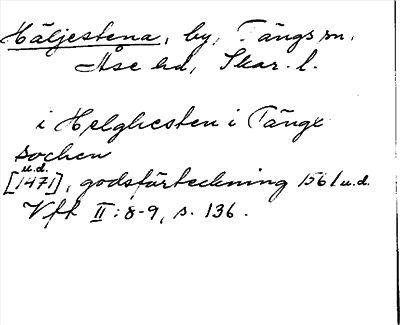 Häljestena, by, Tängs sn,
Åse hd, Skar. l.
i Helghesten i Tänge
sochen
u.d.
[1471], godsförteckning 1561 u.d.
Vfk II:8-9, s. 136.